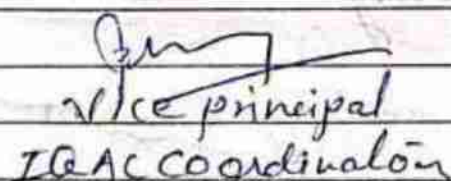 Vice principal
IQAC Coordinator